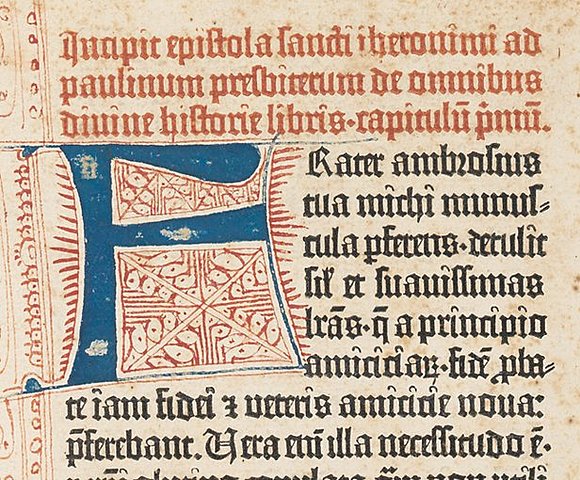 Incipit epistola sancti iheronimi ad
paulinum presbiterum de omnibus
divine historie libris·capitulū p̄mū.
FRater ambrosius
tua michi munus⸗
cula pferens·detulit
sił et suavissimas
lrās·q̄ a principio
amiciciaꝝ·fidē pba⸗
te iam fidei ⁊ veteris amicicie nova:
pferebant. Vera eni illa necessitudo ē·